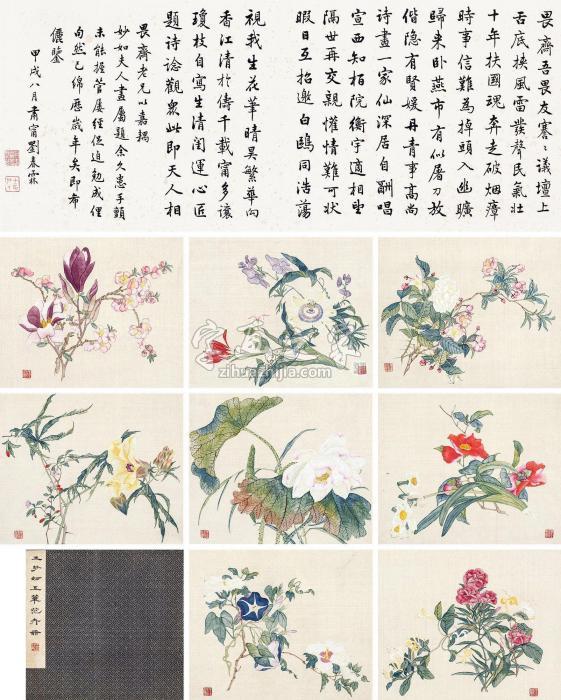 畏齋吾畏友謇〻議壇上
舌底換風雷發聲民氣壯
十年扶國魂奔走破煙瘴
時事信難為掉頭入幽曠
歸來卧燕市有似屠刀放
偕隱有賢媛丹青事高尚
詩畫一家仙深居自酬唱
宣西知栢院衡宇適相望
隔世再交親懽情難可狀
暇日互招邀白鷗同浩蕩
視我生花筆晴昊繁華向
香江清於儔千載甯多讓
瓊枝自寫生清閨運心匠
題詩諗觀眾此即天人相
畏齋老兄以嘉耦
妙如夫人畫屬題余久患手顫
未能握管屢經促迫勉成俚
句然已綿歷歲年矣即希
儷鑒
甲戌八月肅甯劉春霖
zihuazhijia.com